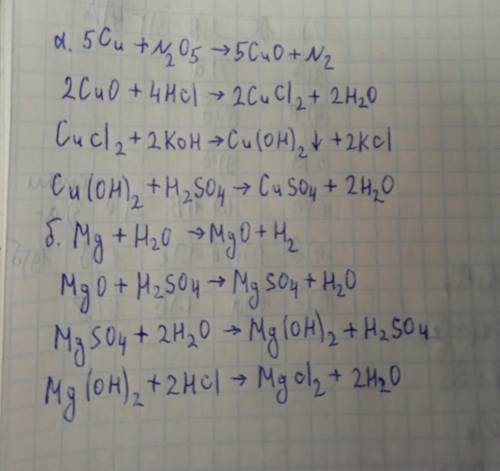 а. 5Cu + N₂O₅ → 5CuO + N₂
2CuO + 4HCl → 2CuCl₂ + 2H₂O
CuCl₂ + 2KOH → Cu(OH)₂↓ + 2KCl
Cu(OH)₂ + H₂SO₄ → CuSO₄ + 2H₂O
б. Mg + H₂O → MgO + H₂
MgO + H₂SO₄ → MgSO₄ + H₂O
MgSO₄ + 2H₂O → Mg(OH)₂ + H₂SO₄
Mg(OH)₂ + 2HCl → MgCl₂ + 2H₂O